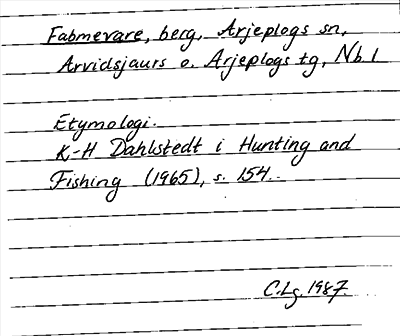 Fabmevare, berg, Arjeplogs sn,
Arvidsjaurs o. Arjeplogs tg, Nb. l
Etymologi.
K.-H Dahlstedt i Hunting and
Fishing (1965), s. 154.
C.Lg. 1987.